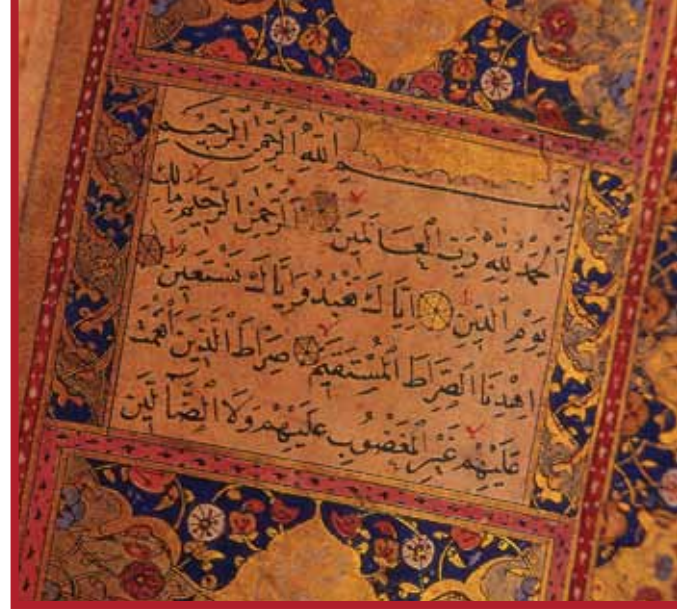 بِسْمِ اللهِ الرَّحْمٰنِ الرَّحِيمِ
اَلْحَمْدُ لِلّٰهِ رَبِّ الْعَالَمِينَ الرَّحْمٰنِ الرَّحِيمِ مَالِكِ
يَوْمِ الدِّينِ اِيَّاكَ نَعْبُدُ وَاِيَّاكَ نَسْتَعِينُ
اِهْدِنَا الصِّرَاطَ الْمُسْتَقِيمَ صِرَاطَ الَّذِينَ اَنْعَمْتَ
عَلَيْهِمْ غَيْرِ الْمَغْضُوبِ عَلَيْهِمْ وَلَا الضَّآلِّينَ